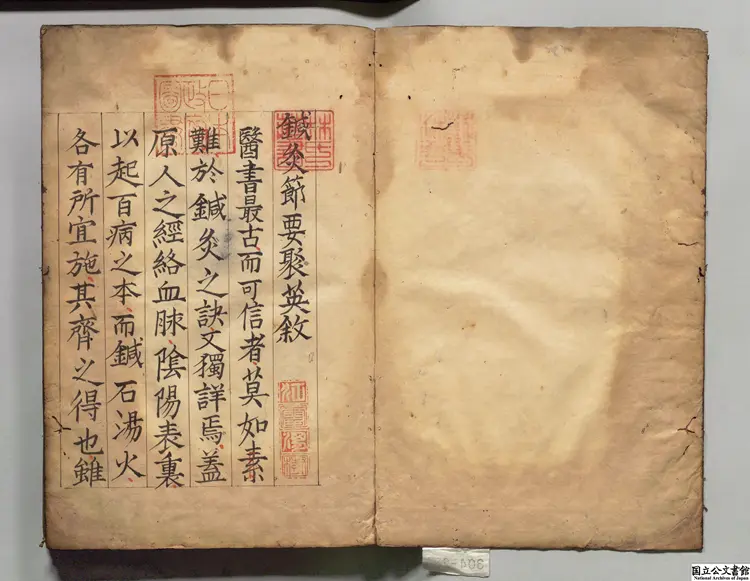 鍼灸節要聚英敘
醫書最古而可信者莫如素
難於鍼灸之訣又獨詳焉蓋
原人之經絡血脉陰陽表裏
以起百病之本而鍼石湯火
各有所宜施其齊之得也雖
日本
政府
圖書
304
国立公文書館
National Archives of Japan